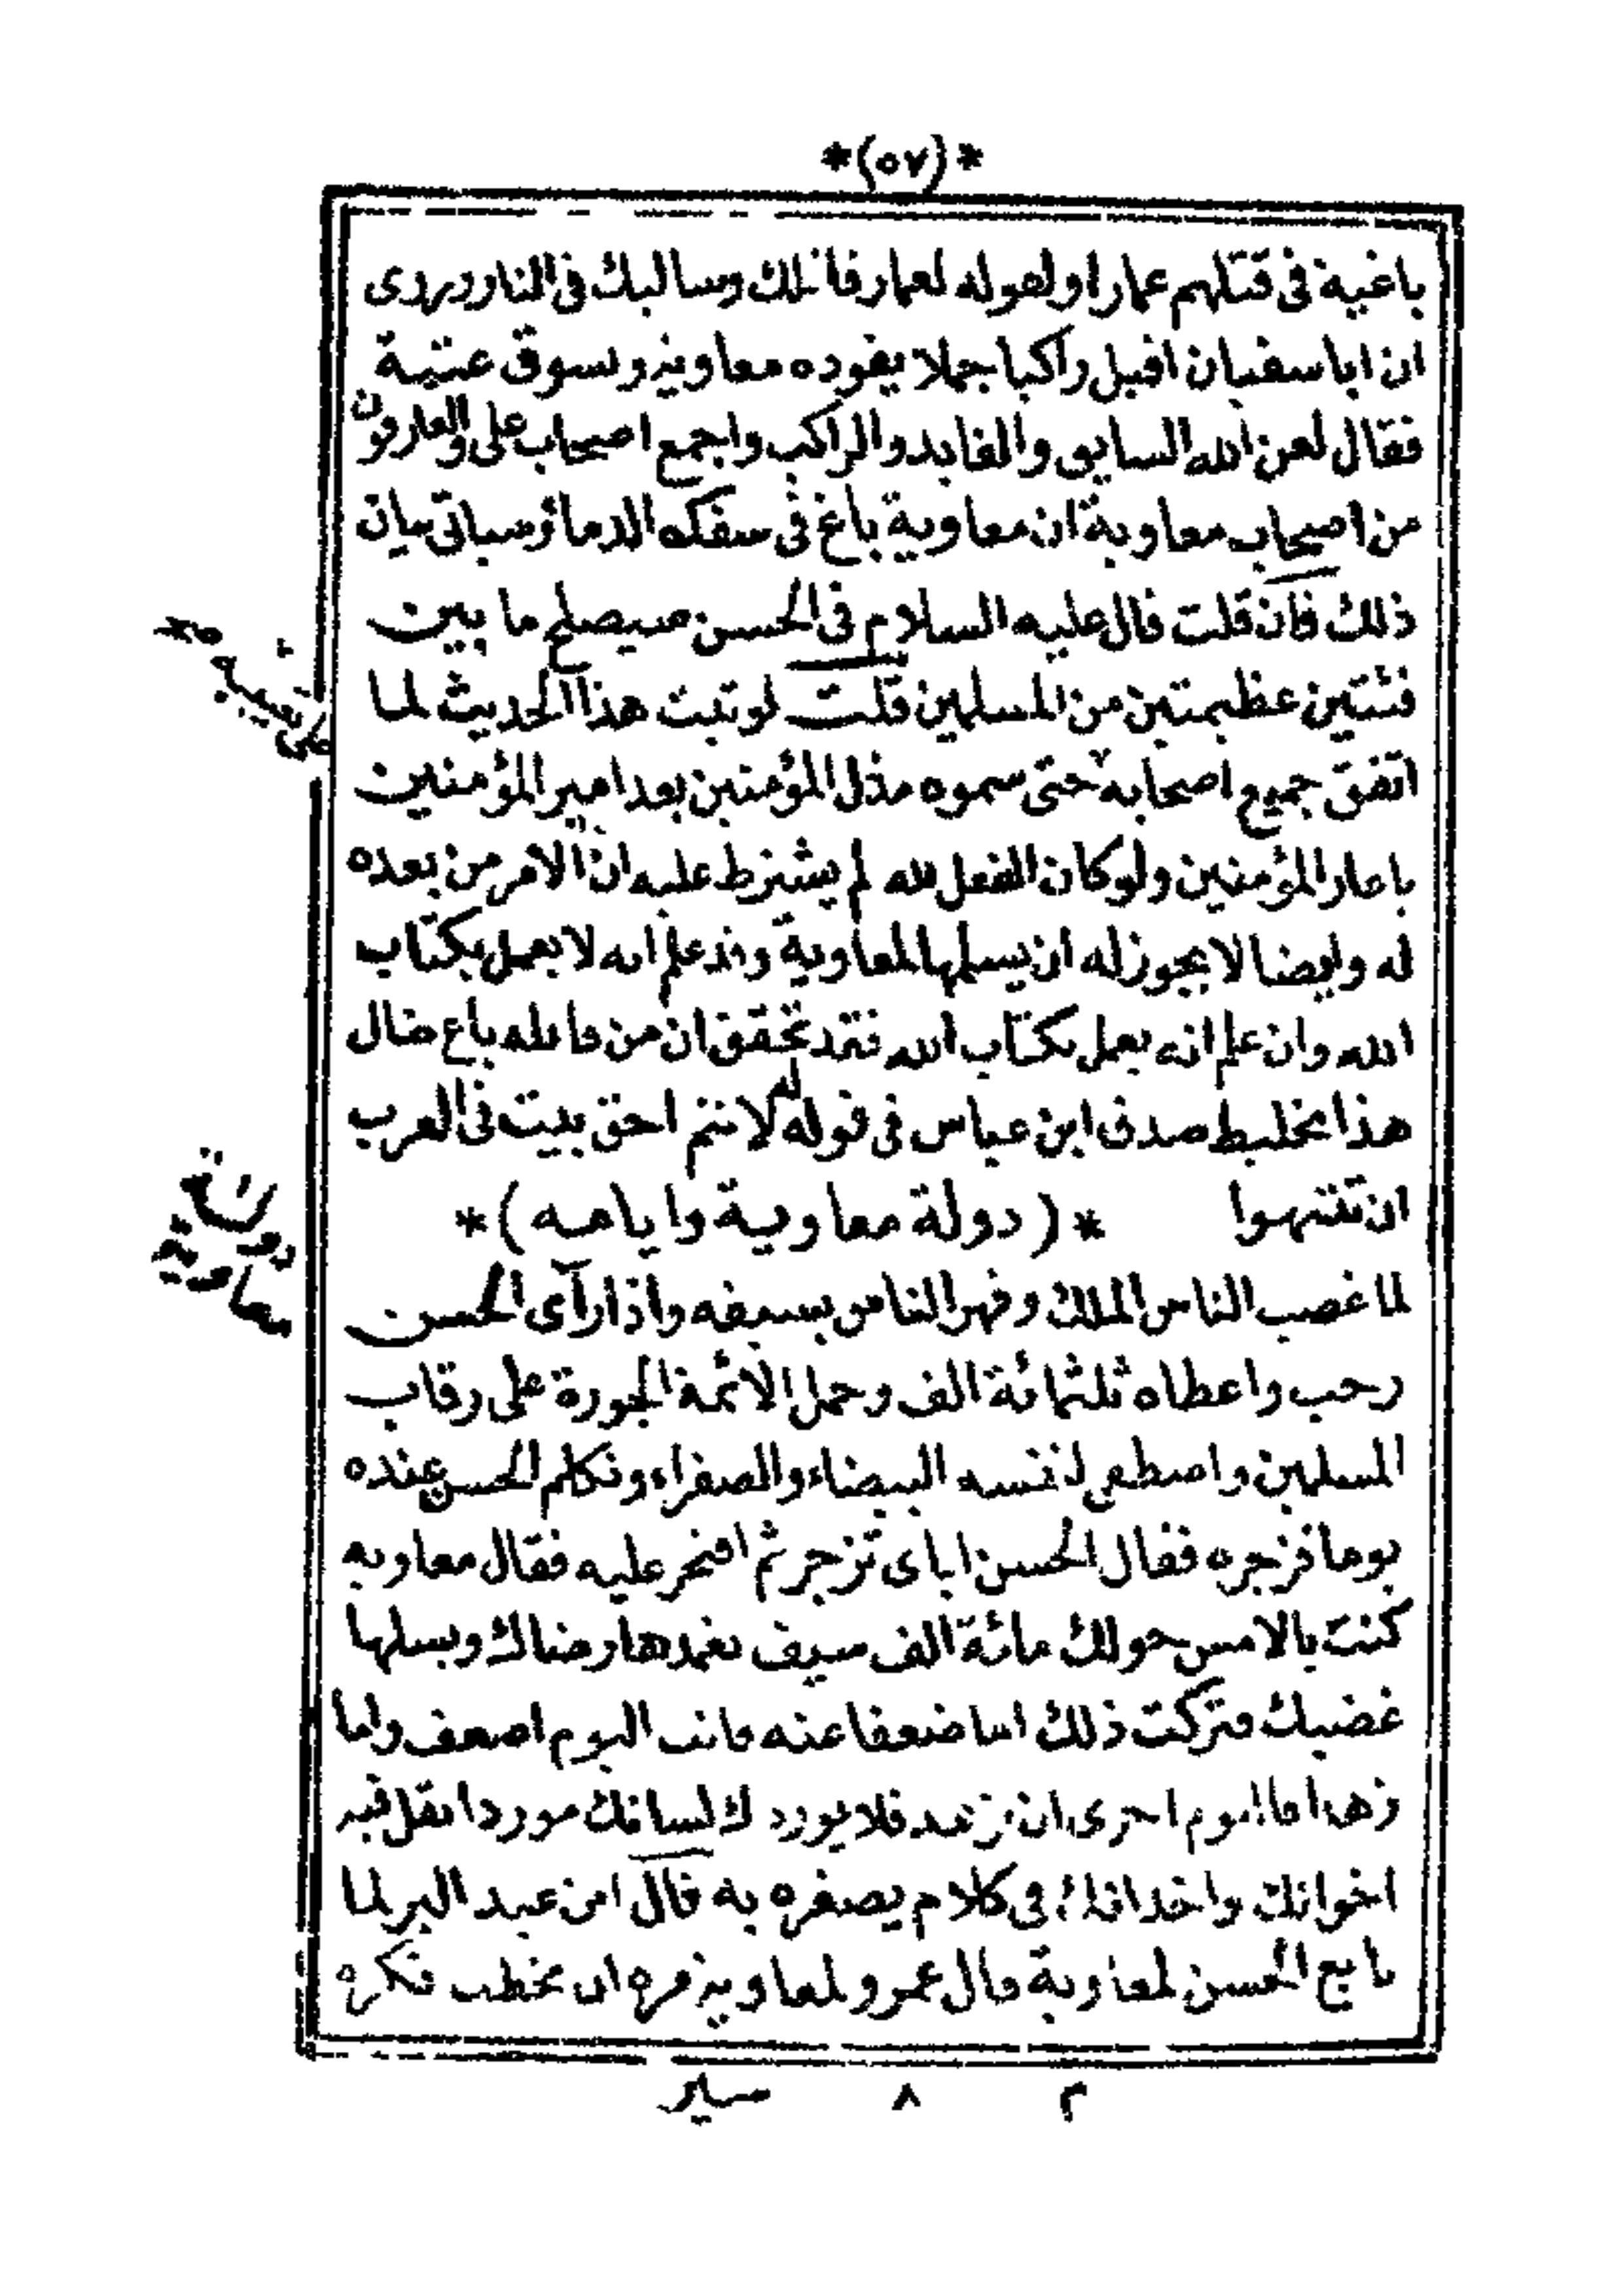 *(٥٧)*
باغية فى قتلهم عمارا ولقوله لعمار قاتلك وسالبك فى النار وروى
ان ابا سفيان اقبل راكبا جملا يقوده معاوية ويسوق عتبة
فقال لعن الله السايق والقايد والراكب واجمع اصحاب على والعارفون
من اصحاب معاوية ان معاوية باغ فى سفكه الدماؤ سياتى بيان
ذلك فان قلت قال عليه السلام فى الحسن سيصلح ما بين
فئتين عظيمتين من المسلمين قلت لو ثبت هذا الحديث لما
اتفق جميع اصحابه حتى سموه مذل المؤمنين بعد امير المؤمنين
باعار المؤمنين ولو كان الفعل لله لم يشترط عليه ان الامر من بعده
له وايضا لا يجوز له ان يسلمها لمعاوية وقد علم انه لا يعمل بكتاب
الله وان علم انه يعمل بكتاب الله فقد تحقق ان من قاتله باغ ضال
هذا تخليط صدق ابن عباس فى قوله له لانتم احق بيت فى العرب
ان تنتهوا *(دولة معاوية وايامه)*
لما غصب الناس الملك وقهر الناس بسيفه واذا رآى الحسن
رحب واعطاه ثلثمائة الف وحمل الائمة الجورة على رقاب
المسلمين واصطفى لنفسه البيضاء والصفراء وتكلم الحسن عنده
يوما فزجره فقال الحسن اياى تزجر ثم افتخر عليه فقال معاويه
كنت بالامس حولك مائة الف سيف يغمدها رضاك ويسلها
غضبك فتركت ذلك اما ضعفا عنه فانت اليوم اضعف واما
زهدا فاليوم احرى ان تزهد فلا يوردك لسانك موردا تقل فيه
اخوانك واخدانك فى كلام يصغره به قال ابن عبد البر لما
بايع الحسن لمعاوية قال عمرو لمعاوية مره ان يخطب فكره
م ٨ سير
دولة
معاوية